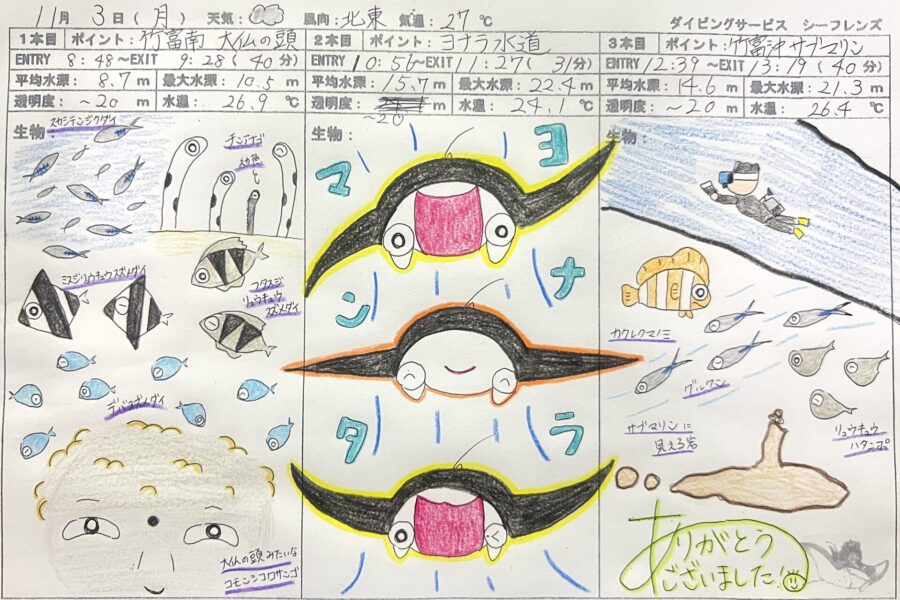 11月 3日(月) 天気: 風向:北東 気温:27℃
ダイビングサービス シーフレンズ
1本目 ポイント:竹富南 大仏の頭
ENTRY 8:48〜EXIT 9:28(40分)
平均水深: 8.7m 最大水深: 10.5m
透明度: 〜20m 水温: 26.9℃
生物:
スカシテンジクダイ
チンアナゴ
幼魚
も
ミスジリュウキュウスズメダイ
フタスジ
リュウキュウ
スズメダイ
デバスズメダイ
大仏の頭みたいな
コモンシコロサンゴ
2本目 ポイント:ヨナラ水道
ENTRY 10:56〜EXIT 11:27(31分)
平均水深: 15.7m 最大水深: 22.4m
透明度: m 水温: 24.1℃
〜20
生物:
ヨナラ
マンタ
3本目 ポイント:竹富沖サブマリン
ENTRY 12:39〜EXIT 13:19(40分)
平均水深: 14.6m 最大水深: 21.3m
透明度: 〜20m 水温: 26.4℃
生物:
カクレクマノミ
グルクン
リュウキュウ
ハタンポ
サブマリンに
見える岩
ありがとう
ございました!